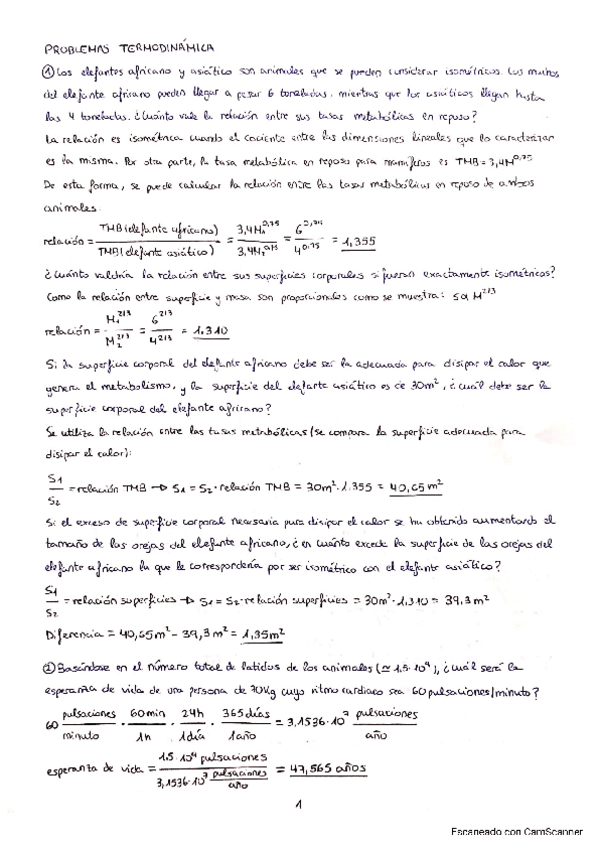 PROBLEMAS TERMODINÁMICA
① Los elefantes africano y asiático son animales que se pueden considerar isométricos. Los machos
del elefante africano pueden llegar a pesar 6 toneladas, mientras que los asiáticos llegan hasta
las 4 toneladas. ¿Cuánto vale la relación entre sus tasas metabólicas en reposo?
La relación es isométrica cuando el cociente entre las dimensiones lineales que lo caracterizan
es la misma. Por otra parte, la tasa metabólica en reposo para mamíferos es TMB = 3,4M^0,75
De esta forma, se puede calcular la relación entre las tasas metabólicas en reposo de ambos
animales:
relación = TMB (elefante africano) / TMB (elefante asiático) = 3,4M₁^0,75 / 3,4M₂^0,75 = 6^0,75 / 4^0,75 = 1,355
¿Cuánto valdría la relación entre sus superficies corporales si fueran exactamente isométricos?
Como la relación entre superficie y masa son proporcionales como se muestra: S α M^2/3
relación = M₁^2/3 / M₂^2/3 = 6^2/3 / 4^2/3 = 1.310
Si la superficie corporal del elefante africano debe ser la adecuada para disipar el calor que
genera el metabolismo, y la superficie del elefante asiático es de 30m², ¿cuál debe ser la
superficie corporal del elefante africano?
Se utiliza la relación entre las tasas metabólicas (se compara la superficie adecuada para
disipar el calor):
S1 / S2 = relación TMB → S1 = S2 · relación TMB = 30m² · 1.355 = 40,65 m²
Si el exceso de superficie corporal necesaria para disipar el calor se ha obtenido aumentando el
tamaño de las orejas del elefante africano, ¿en cuánto excede la superficie de las orejas del
elefante africano la que le correspondería por ser isométrico con el elefante asiático?
S1 / S2 = relación superficies → S1 = S2 · relación superficies = 30m² · 1.310 = 39,3 m²
Diferencia = 40,65m² - 39,3m² = 1,35m²
② Basándose en el número total de latidos de los animales (≃ 1.5·10⁹), ¿cuál será la
esperanza de vida de una persona de 70Kg cuyo ritmo cardiaco sea 60 pulsaciones/minuto?
60 pulsaciones / minuto · 60min / 1h · 24h / 1día · 365días / 1año = 3,1536·10⁷ pulsaciones / año
esperanza de vida = 1.5·10⁹ pulsaciones / 3,1536·10⁷ pulsaciones/año = 47,565 años
1
Escaneado con CamScanner